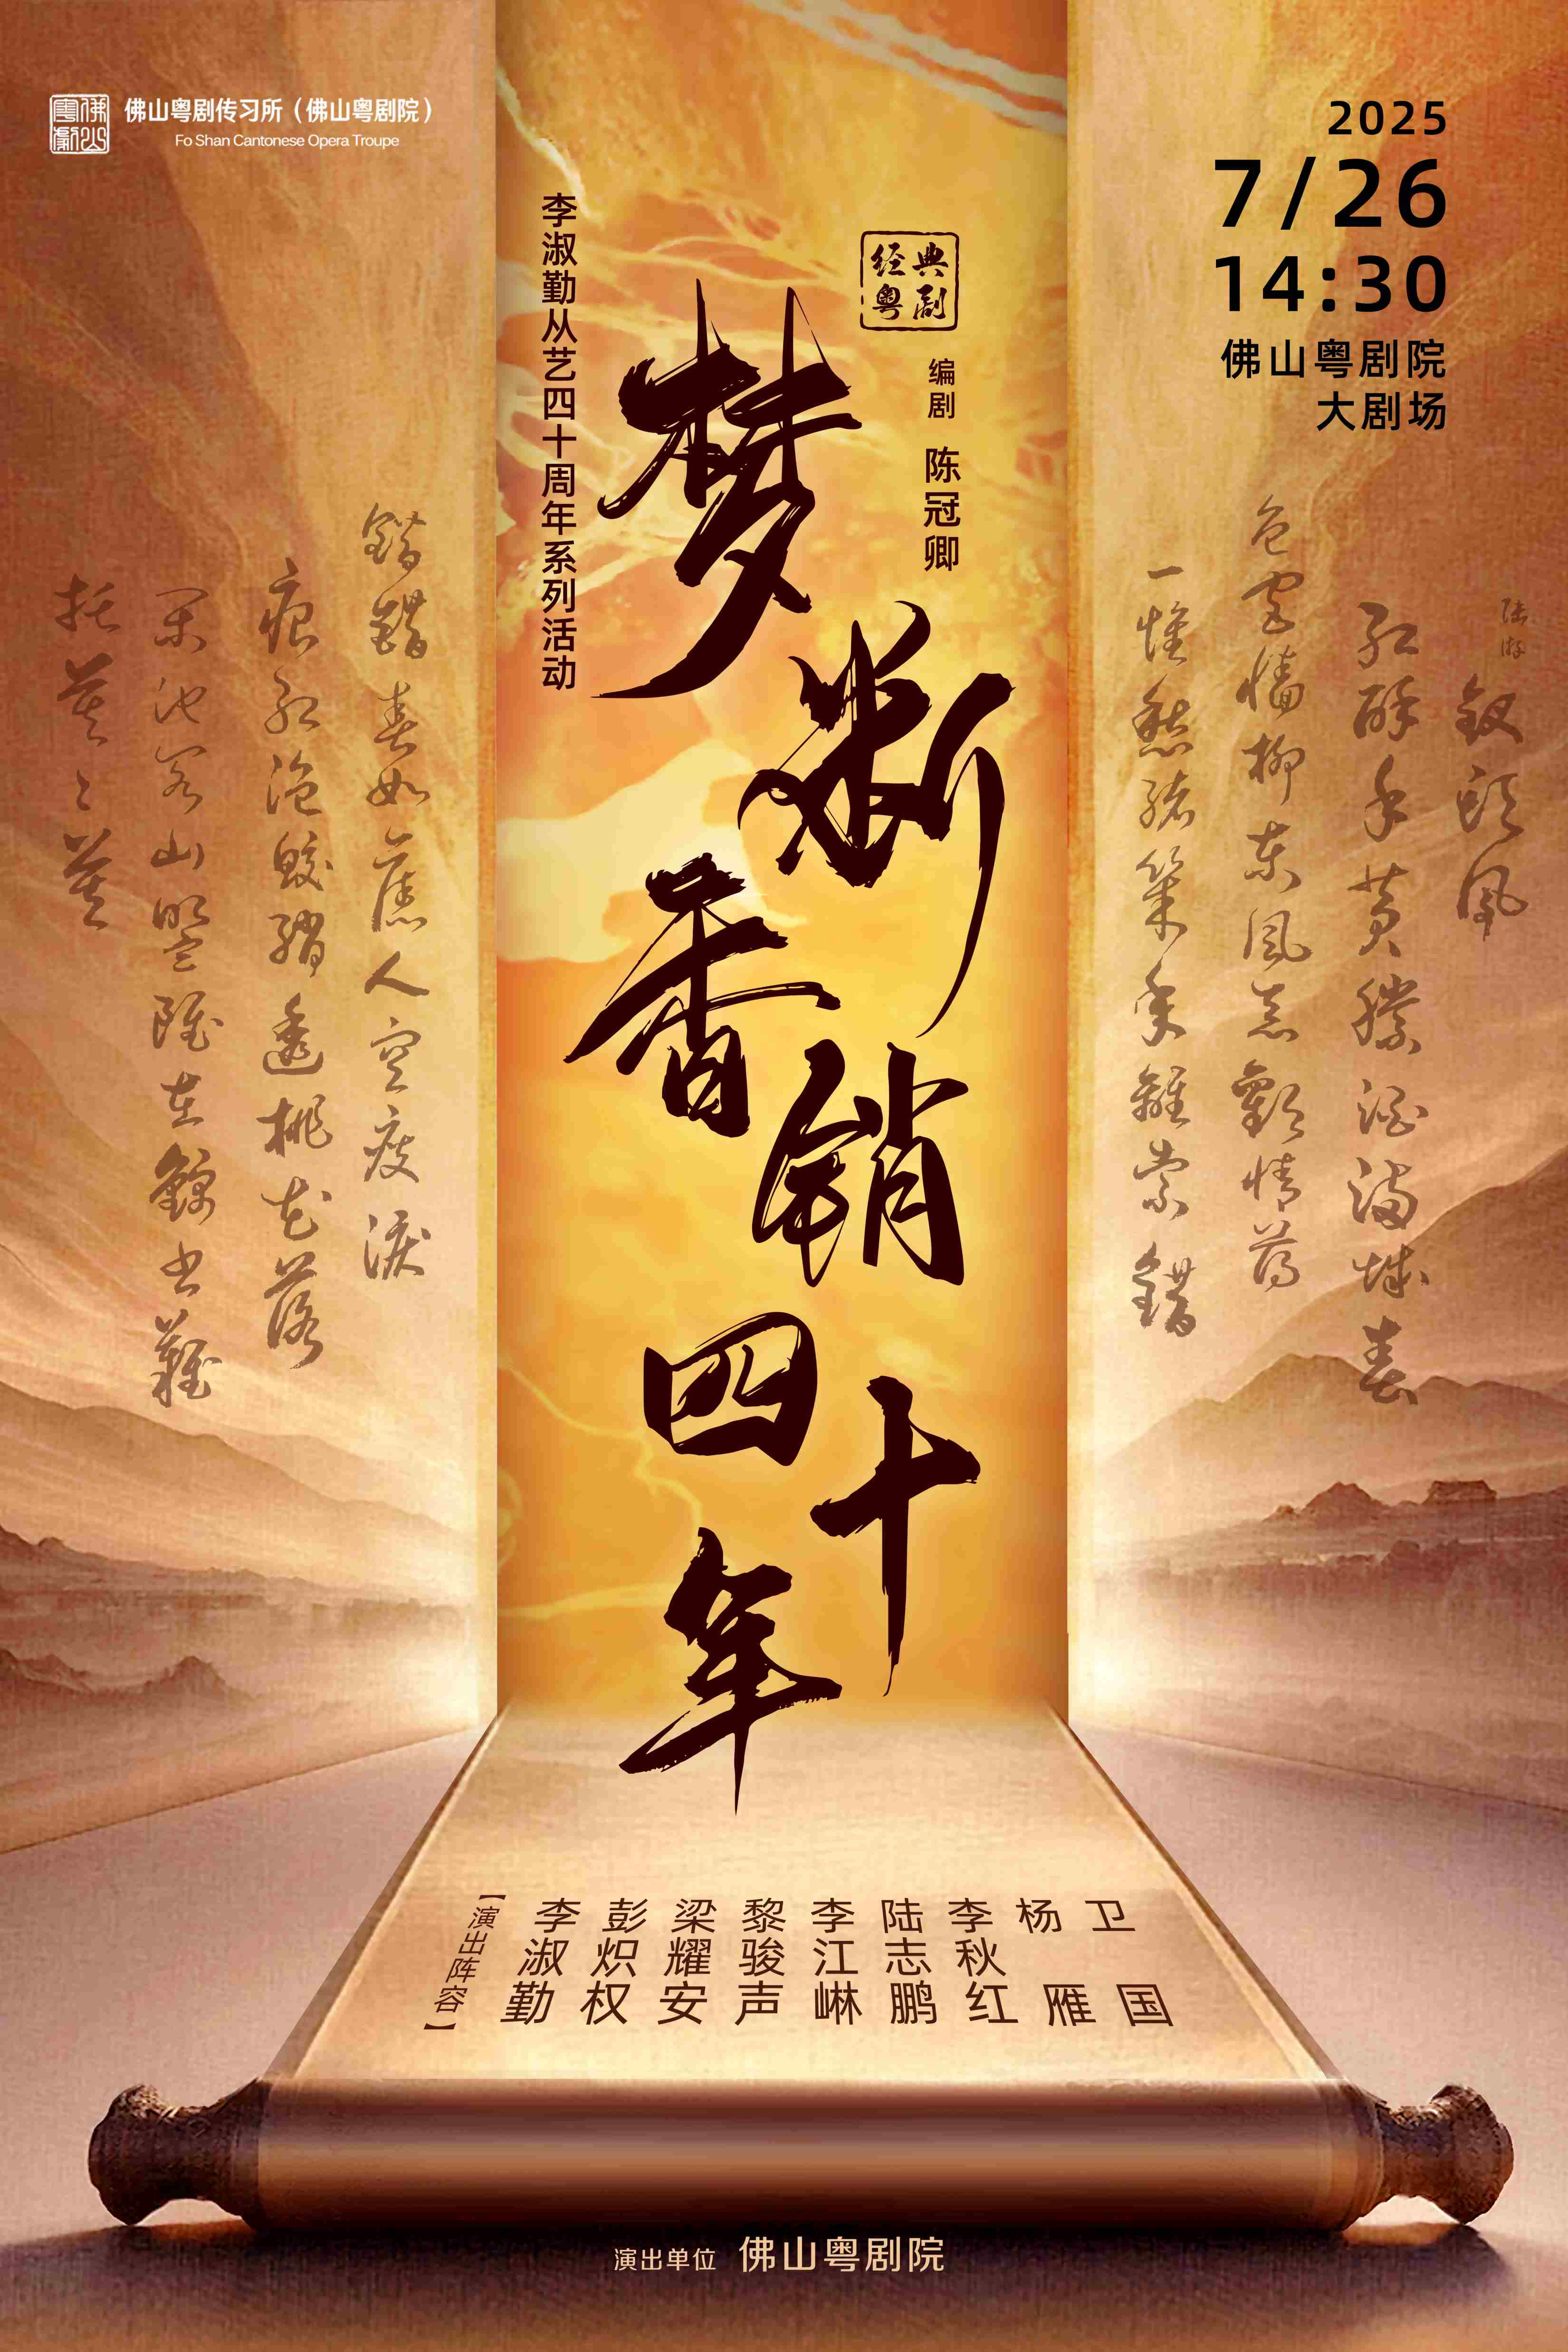 佛山粵劇
佛山粤剧传习所（佛山粤剧院）
Fo Shan Cantonese Opera Troupe
2025
7/26
14:30
佛山粤剧院
大剧场
李淑勤从艺四十周年系列活动
经典
粤剧
编剧 陈冠卿
梦断香销四十年
陆游
釵頭鳳
紅酥手黄縢酒滿城春
色宫牆柳東風惡歡情薄
一懷愁緒幾年離索錯
錯錯春如舊人空瘦淚
痕紅浥鮫綃透桃花落
閑池閣山盟雖在錦書難
托莫〻莫
【演出阵容】
李淑勤
彭炽权
梁耀安
黎骏声
李江崊
陆志鹏
李秋红
杨雁
卫国
演出单位 佛山粤剧院